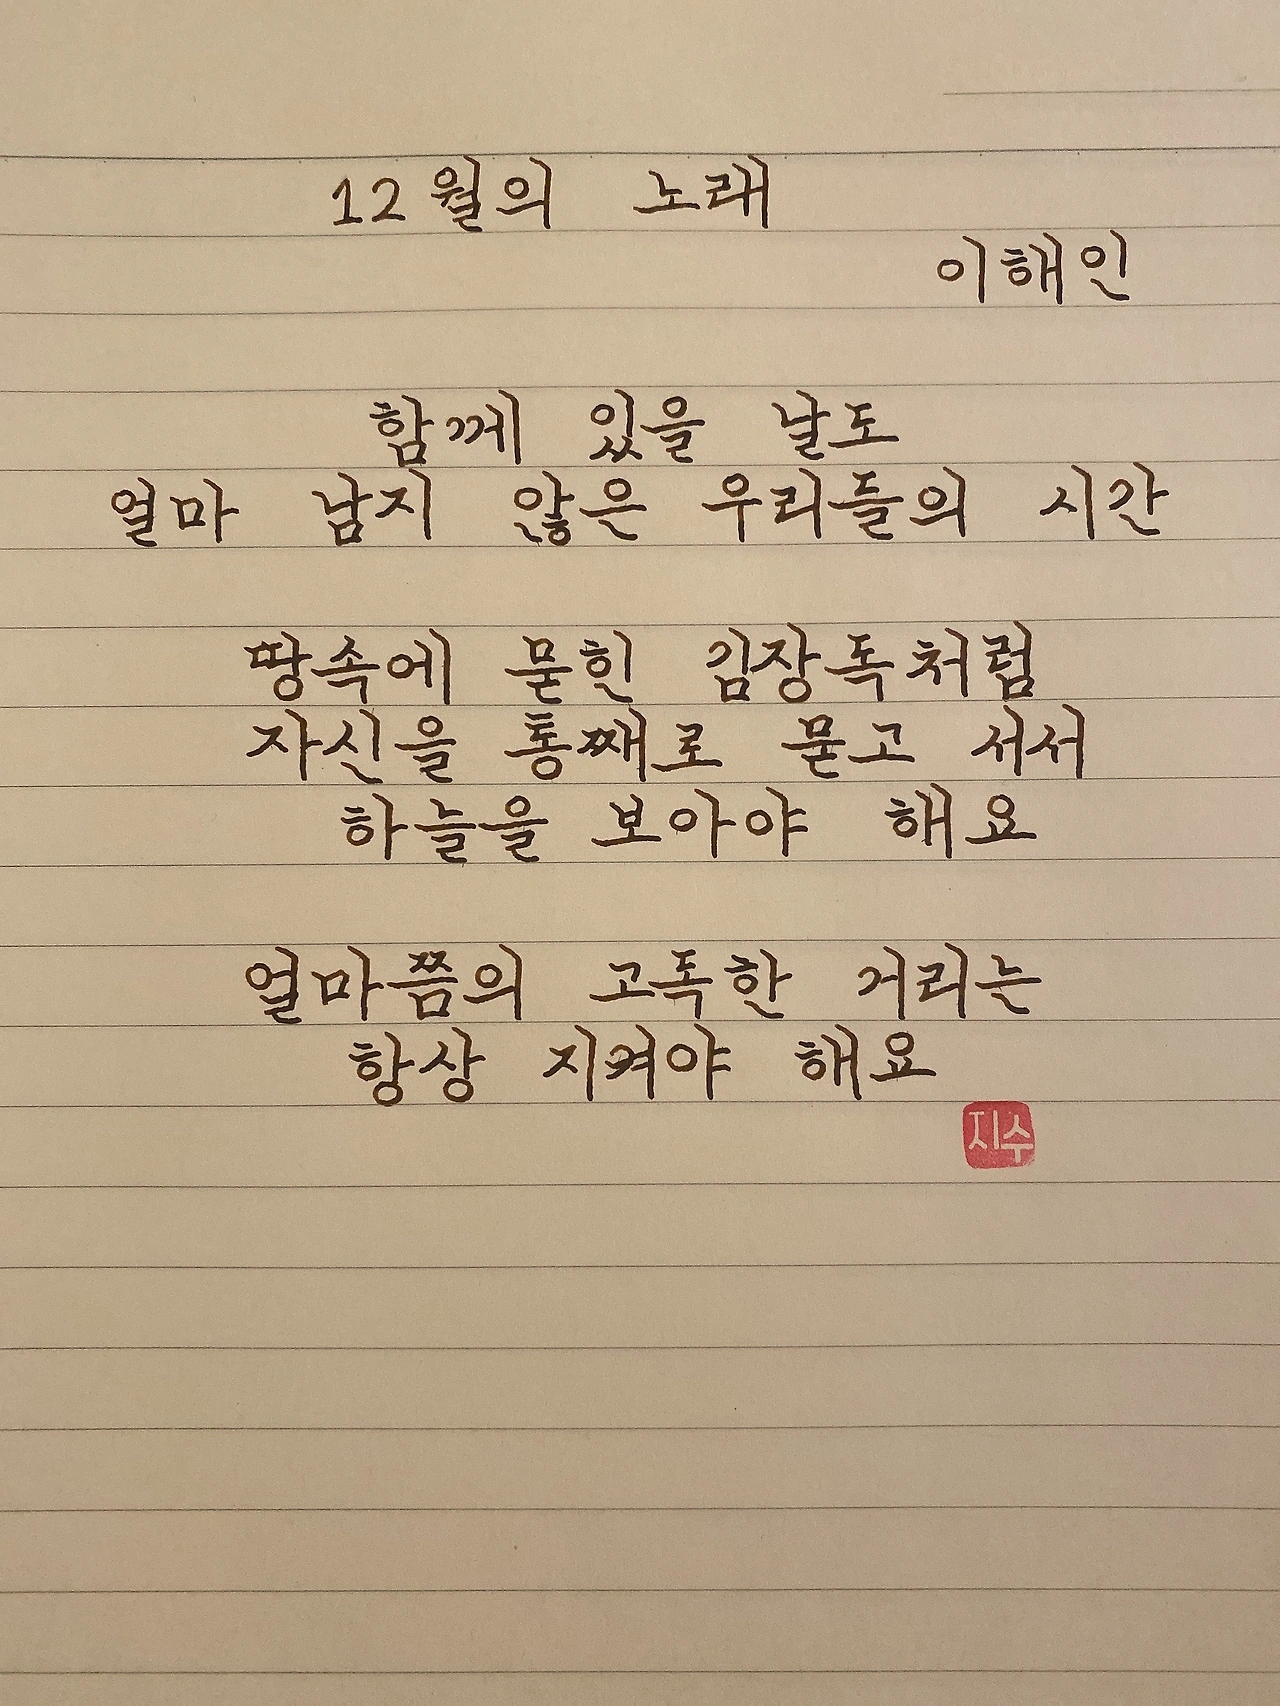 12월의 노래
이해인
함께 있을 날도
얼마 남지 않은 우리들의 시간
땅속에 묻힌 김장독처럼
자신을 통째로 묻고 서서
하늘을 보아야 해요
얼마쯤의 고독한 거리는
항상 지켜야 해요
지수